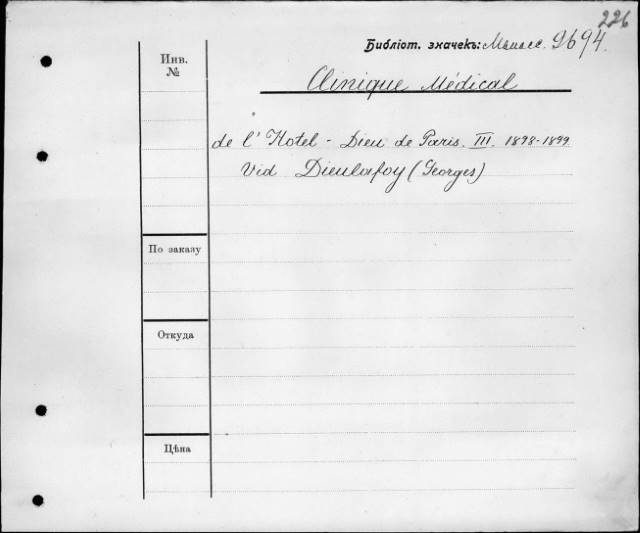 226
Библіот. значекъ: 9694.
Инв.
№
Clinique Médical
de l'Hotel-Dieu de Paris. III. 1898-1899
Vid Dieulafoy (Georges)
По заказу
Откуда
Цѣна